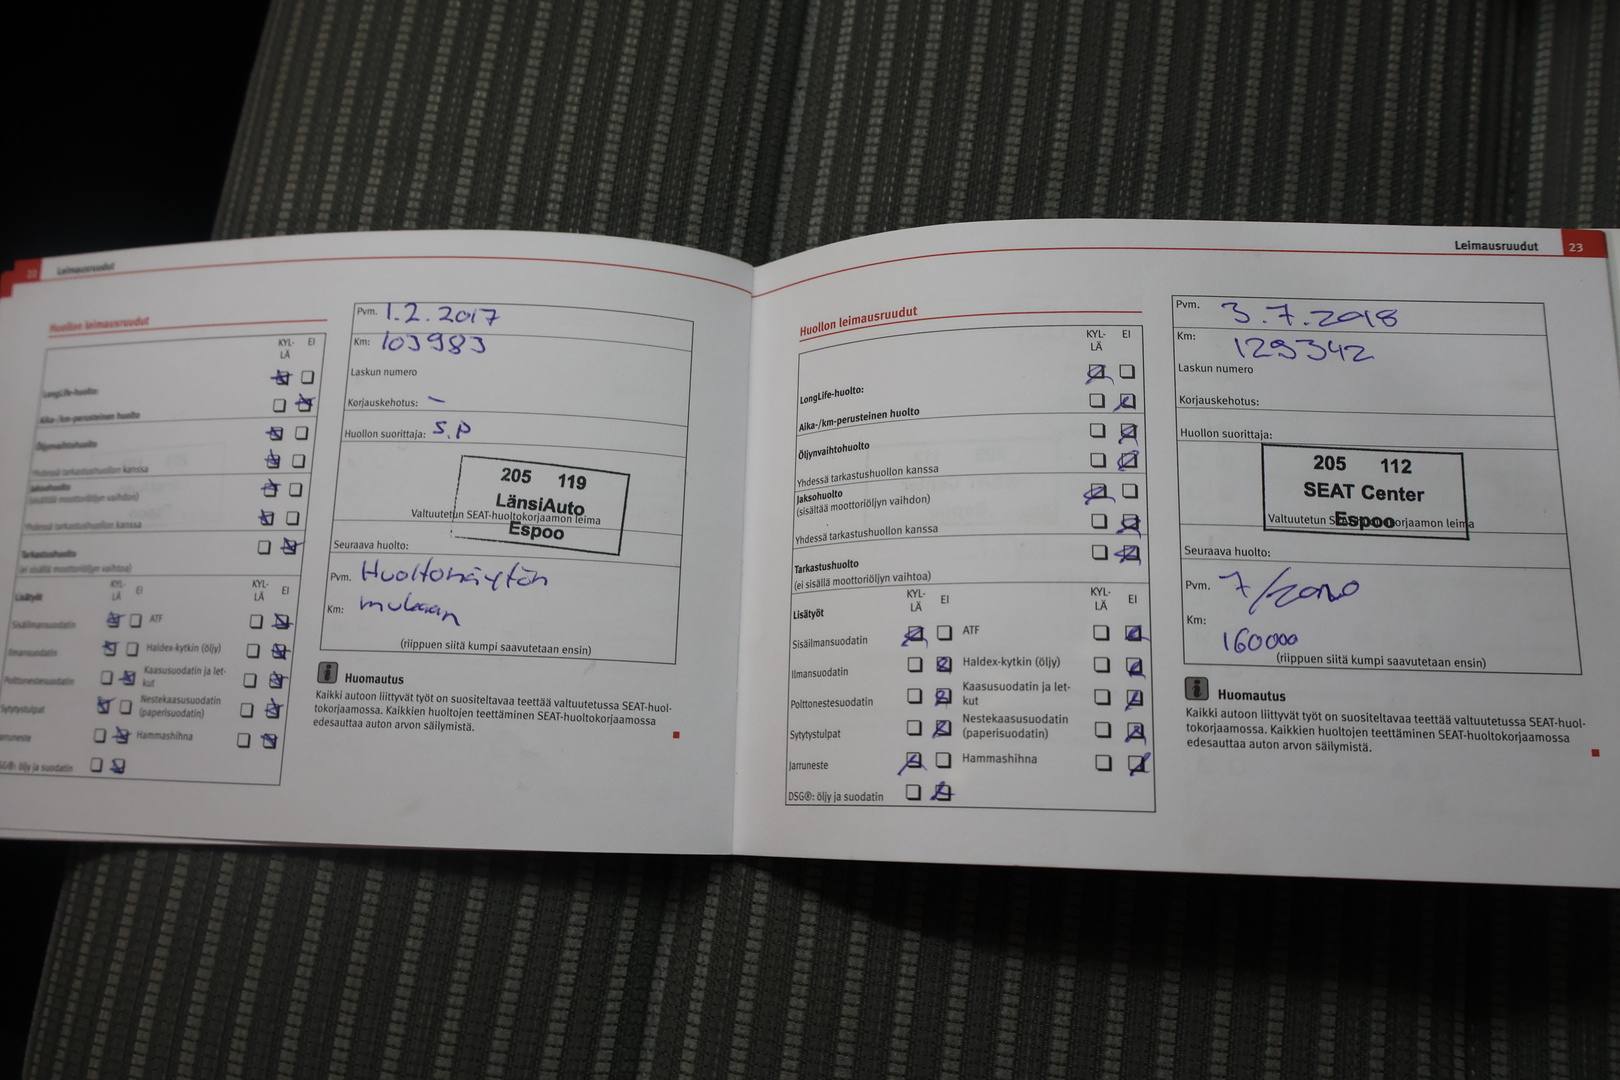 Leimausruudut
Huollon leimausruudut
KYL-
LÄ
EI
LongLife-huolto:
Aika-/km-perusteinen huolto
Öljynvaihtohuolto
Yhdessä tarkastushuollon kanssa
Jaksohuolto
(sisältää moottoriöljyn vaihdon)
Yhdessä tarkastushuollon kanssa
Tarkastushuolto
(ei sisällä moottoriöljyn vaihtoa)
Lisätyöt
KYL-
LÄ
EI
KYL-
LÄ
EI
Sisäilmansuodatin
ATF
Ilmansuodatin
Haldex-kytkin (öljy)
Polttonestesuodatin
Kaasusuodatin ja let-
kut
Sytytystulpat
Nestekaasusuodatin
(paperisuodatin)
Jarruneste
Hammashihna
öljy ja suodatin
Pvm. 1.2.2017
Km: 103983
Laskun numero
Korjauskehotus: –
Huollon suorittaja: S.P
205 119
LänsiAuto
Espoo
Valtuutetun SEAT-huoltokorjaamon leima
Seuraava huolto:
Pvm. Huoltonäytön
Km: mukaan
(riippuen siitä kumpi saavutetaan ensin)
Huomautus
Kaikki autoon liittyvät työt on suositeltavaa teettää valtuutetussa SEAT-huol-
tokorjaamossa. Kaikkien huoltojen teettäminen SEAT-huoltokorjaamossa
edesauttaa auton arvon säilymistä.
Leimausruudut 23
Huollon leimausruudut
KYL-
LÄ
EI
LongLife-huolto:
Aika-/km-perusteinen huolto
Öljynvaihtohuolto
Yhdessä tarkastushuollon kanssa
Jaksohuolto
(sisältää moottoriöljyn vaihdon)
Yhdessä tarkastushuollon kanssa
Tarkastushuolto
(ei sisällä moottoriöljyn vaihtoa)
Lisätyöt
KYL-
LÄ
EI
KYL-
LÄ
EI
Sisäilmansuodatin
ATF
Ilmansuodatin
Haldex-kytkin (öljy)
Polttonestesuodatin
Kaasusuodatin ja let-
kut
Sytytystulpat
Nestekaasusuodatin
(paperisuodatin)
Jarruneste
Hammashihna
DSG®: öljy ja suodatin
Pvm. 3.7.2018
Km: 129342
Laskun numero
Korjauskehotus:
Huollon suorittaja:
205 112
SEAT Center
Espoo
Valtuutetun SEAT-huoltokorjaamon leima
Seuraava huolto:
Pvm. 7/2020
Km:
160000
(riippuen siitä kumpi saavutetaan ensin)
Huomautus
Kaikki autoon liittyvät työt on suositeltavaa teettää valtuutetussa SEAT-huol-
tokorjaamossa. Kaikkien huoltojen teettäminen SEAT-huoltokorjaamossa
edesauttaa auton arvon säilymistä.